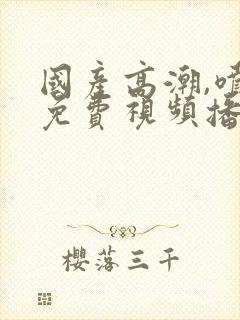 國產高潮,噴
免費視頻播
櫻落三千